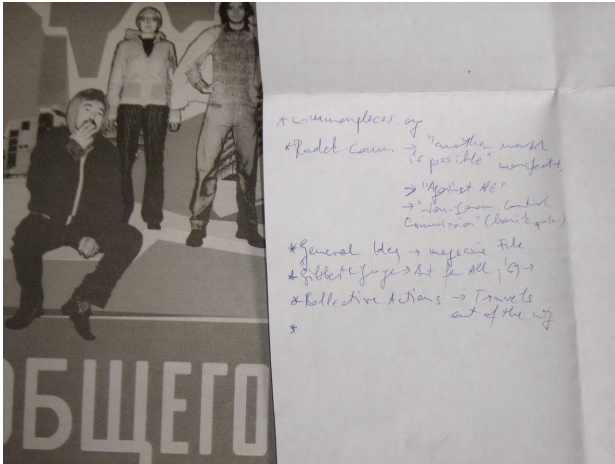 ОБЩЕГО
* commonplaces.org
* Radek Comm → "another world
is possible" manifest,
→ "Against All"
Commission"
* General Idea → megazine File
* Gilbert & George → Art for All, '69 →
* Kollective Actions → Travels
out of the city
*